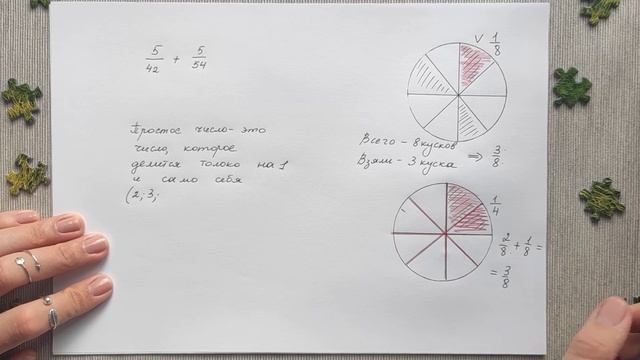 5/42 + 5/54
Простое число - это
число, которое
делится только на 1
и само себя
(2; 3;
V 1/8
Всего - 8 кусков
Взяли - 3 куска => 3/8
1/4
2/8 + 1/8 =
= 3/8